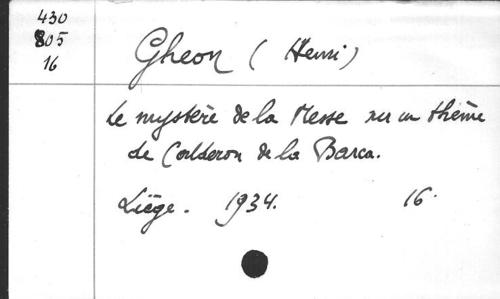 430
805
16
Gheon (Henri)
Le mystère de la Messe sur un thème
de Calderon de la Barca.
Liège. 1934. 16.